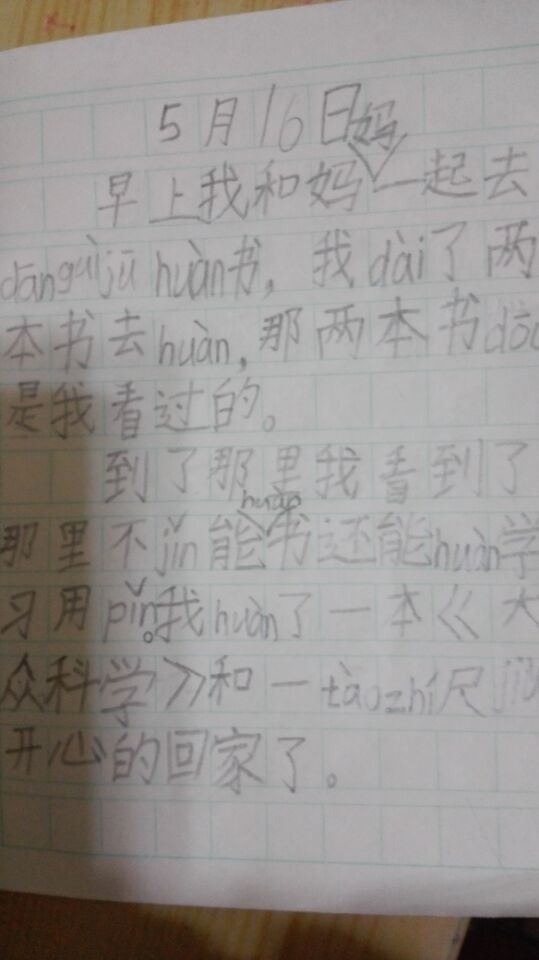 5月16日
早上我和妈妈一起去
dāngùijū huàn书，我dài了两
本书去huàn，那两本书dōu
是我看过的。
到了那里我看到了
那里不jǐn能huàn书还能huàn学
习用pǐn。我huàn了一本《大
众科学》和一tàozhí尺jiù
开心的回家了。